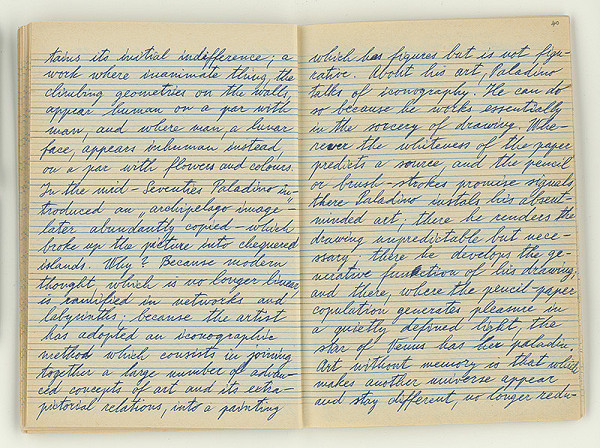 tains its initial indifference; a
work where inanimate thing, the
climbing geometries on the walls,
appear human on a par with
man, and where man, a lunar
face, appears inhuman instead,
on a par with flowers and colours.
In the mid-Seventies Paladino in-
troduced an "archipelago image"
later abundantly copied-which
broke up the picture into chequered
islands. Why? Because modern
thought, which is no longer linear,
is ramified in networks and
labyrinths: because the artist
has adopted an iconographic
method which consists in joining
together a large number of advan-
ced concepts of art and its extra-
pictorial relations, into a painting
40
which has figures but is not figu-
rative. About his art, Paladino
talks of iconography. He can do
so because he works essentially
in the sorcery of drawing. Whe-
rever the whiteness of the paper
predicts a source and the pencil
or brush-strokes promise signals,
there Paladino instals his absent-
minded art; there he renders the
drawing unpredictable but nece-
ssary, there he develops the ge-
nerative function of his drawing;
and there, where the pencil-paper
copulation generates pleasure in
a quietly defined light, the
star of Venus has her paladin.
Art without memory is that which
makes another universe appear
and stay different, no longer redu-